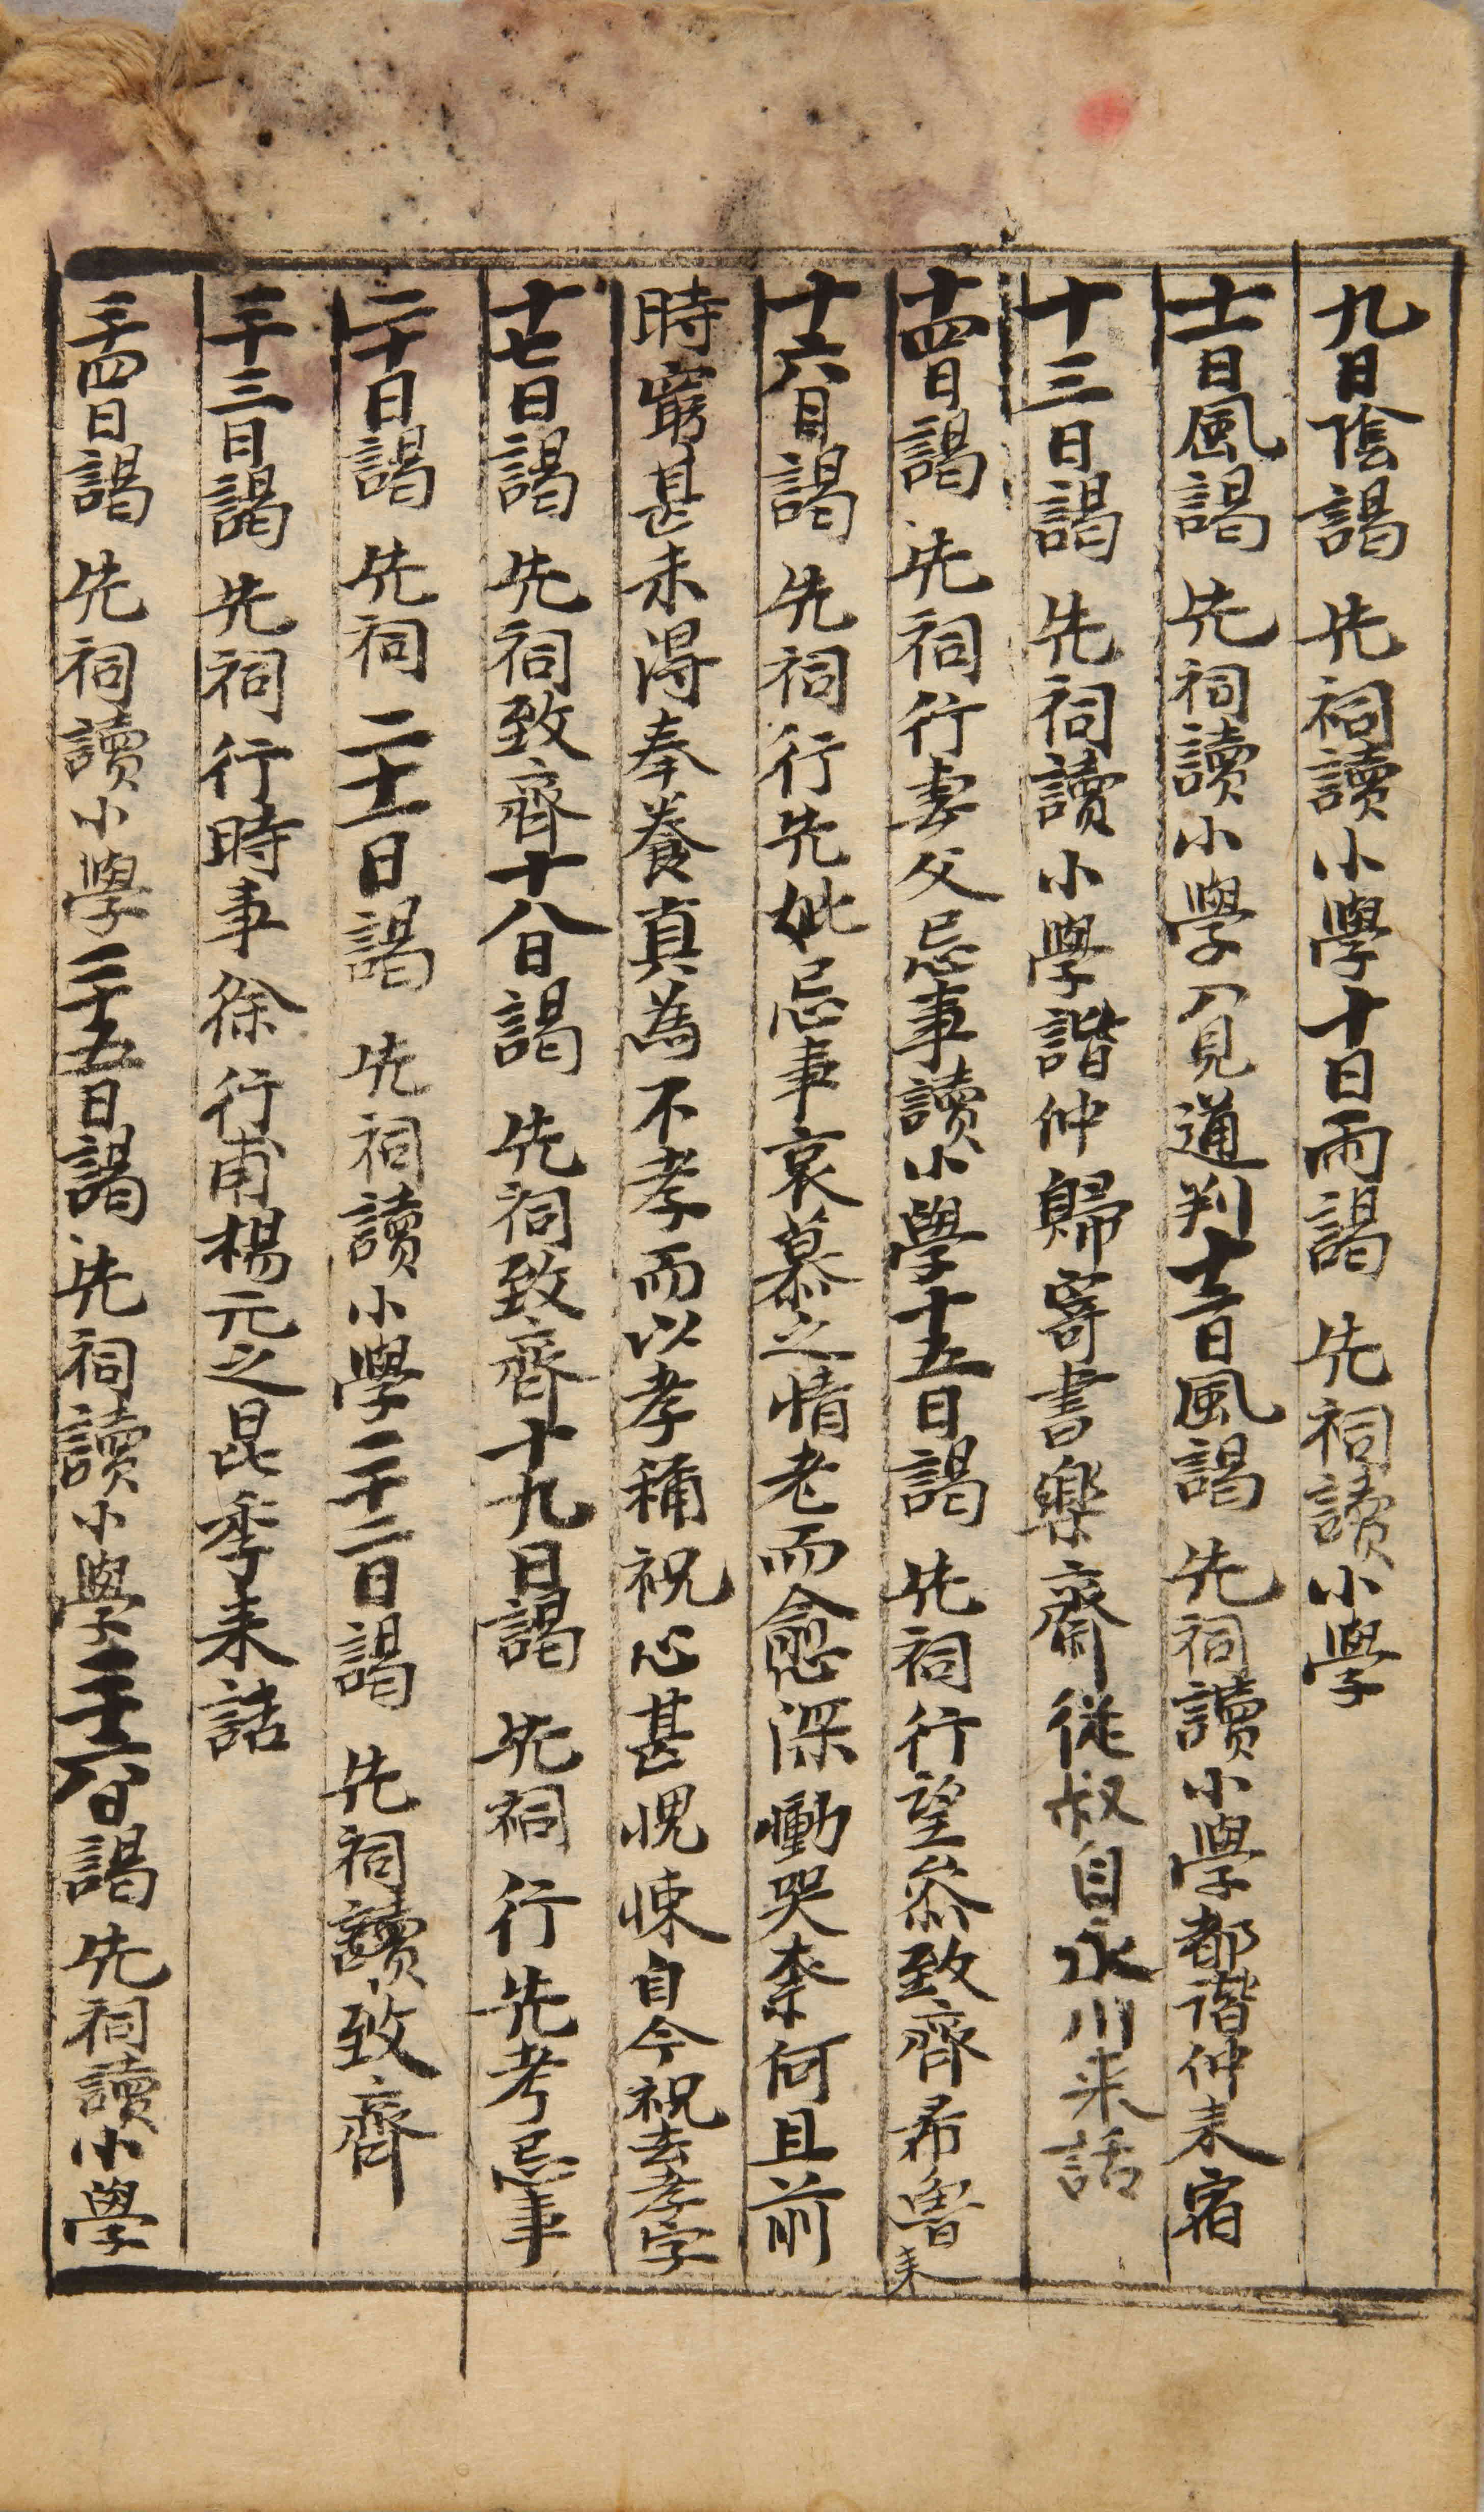 九日陰謁 先祠讀小學十日雨謁 先祠讀小學
十一日風謁 先祠讀小學入見通判十二日風謁 先祠讀小學都諧仲來宿
十三日謁 先祠讀小學諧仲歸寄書樂齋從叔自永川來話
十四日謁 先祠行妻父忌事讀小學十五日謁 先祠行望叅致齊希魯來
十六日謁 先祠行先妣忌事哀慕之情老而愈深慟哭柰何且前
時窮甚未得奉養真為不孝而以孝稱祝心甚愧悚自今祝去孝字
十七日謁 先祠致齊十八日謁 先祠致齊十九日謁 先祠行先考忌事
二十日謁 先祠 二十一日謁 先祠讀小學二十二日謁 先祠讀致齊
二十三日謁 先祠行時事徐行甫楊元之昆季來話
二十四日謁 先祠讀小學二十五日謁 先祠讀小學二十六日謁 先祠讀小學